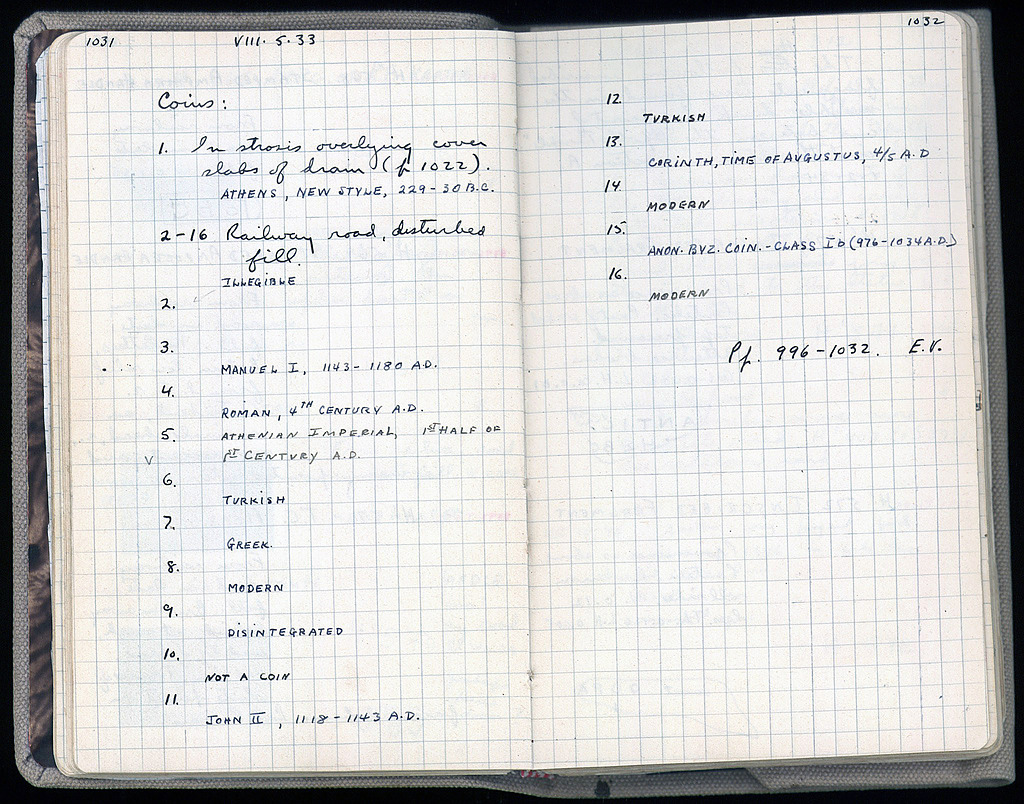 1031
VIII. 5. 33
Coins:
1. In strosis overlying cover
slabs of drain (p 1022).
ATHENS, NEW STYLE, 229-30 B.C.
2-16 Railway road, disturbed
fill.
ILLEGIBLE
2.
3.
MANUEL I, 1143-1180 A.D.
4.
ROMAN, 4TH CENTURY A.D.
5. ATHENIAN IMPERIAL, 1ST HALF OF
V 1ST CENTURY A.D.
6.
TURKISH
7.
GREEK.
8.
MODERN
9.
DISINTEGRATED
10.
NOT A COIN
11.
JOHN II, 1118-1143 A.D.
1032
12.
TURKISH
13.
CORINTH, TIME OF AUGUSTUS, 4/5 A.D
14.
MODERN
15.
ANON. BYZ. COIN. - CLASS Ib (976-1034 A.D.)
16.
MODERN
Pp. 996-1032. E.V.